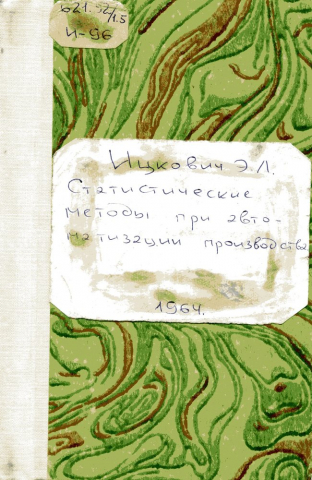 621.
И-96
Ицкович Э.Л.
Статистические
методы при авто-
матизации производства
1964.